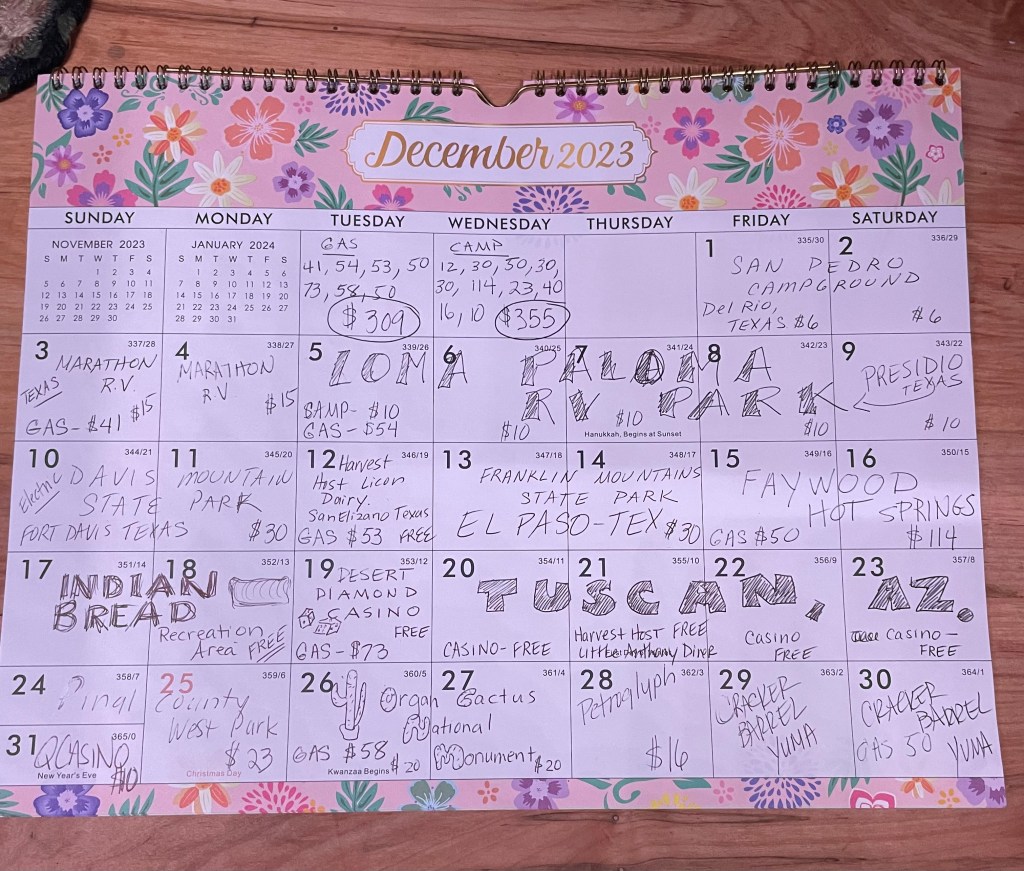 December 2023
SUNDAY MONDAY TUESDAY WEDNESDAY THURSDAY FRIDAY SATURDAY
NOVEMBER 2023
S M T W T F S
1 2 3 4
5 6 7 8 9 10 11
12 13 14 15 16 17 18
19 20 21 22 23 24 25
26 27 28 29 30
JANUARY 2024
S M T W T F S
1 2 3 4 5 6
7 8 9 10 11 12 13
14 15 16 17 18 19 20
21 22 23 24 25 26 27
28 29 30 31
GAS
41, 54, 53, 50
73, 58, 50
$309
CAMP
12, 30, 30, 30,
30, 114, 23, 40
16, 10 $355
1 335/30 2 336/29
SAN PEDRO
CAMPGROUND
Del Rio,
TEXAS $6
$6
3 337/28
MARATHON
TEXAS R.V.
$15
GAS- $41
4 338/27
MARATHON
RV
$15
5 339/26 6 340/25 7 341/24 8 342/23
LOMA PALOMA
RV PARK
$10
GAS- $54
$10
$10
Hanukkah, Begins at Sunset
$10
9 343/22
PRESIDIO
TEXAS
$10
10 344/21 11 345/20
Electric DAVIS MOUNTAIN
STATE PARK
FORT DAVIS TEXAS $30
12 346/19
Harvest
Host Licon
Dairy.
San Elizario Texas
GAS $53 FREE
13 347/18 14 348/17
FRANKLIN MOUNTAINS
STATE PARK
EL PASO-TEX $30
15 349/16 16 350/15
FAYWOOD
HOT SPRINGS
GAS $50 $114
17 351/14 18 352/13
INDIAN
BREAD
Recreation
Area FREE
19 353/12
DESERT
DIAMOND
CASINO
FREE
GAS- $73
20 354/11 21 355/10 22 356/9 23 357/8
TUSCAN, AZ.
CASINO- FREE
Harvest Host FREE
Little Anthony Diner
Casino
FREE
Casino-
FREE
24 358/7
Pinal
25 359/6
County
West Park
$23
Christmas Day
26 360/5 27 361/4
Organ Cactus
National
Monument $20
GAS $58
Kwanzaa Begins $20
28 362/3
Petroglyph
$16
29 363/2
CRACKER
BARREL
YUMA
30 364/1
CRACKER
BARREL
GAS 50 YUMA
31 365/0
QCASINO
New Year's Eve $10